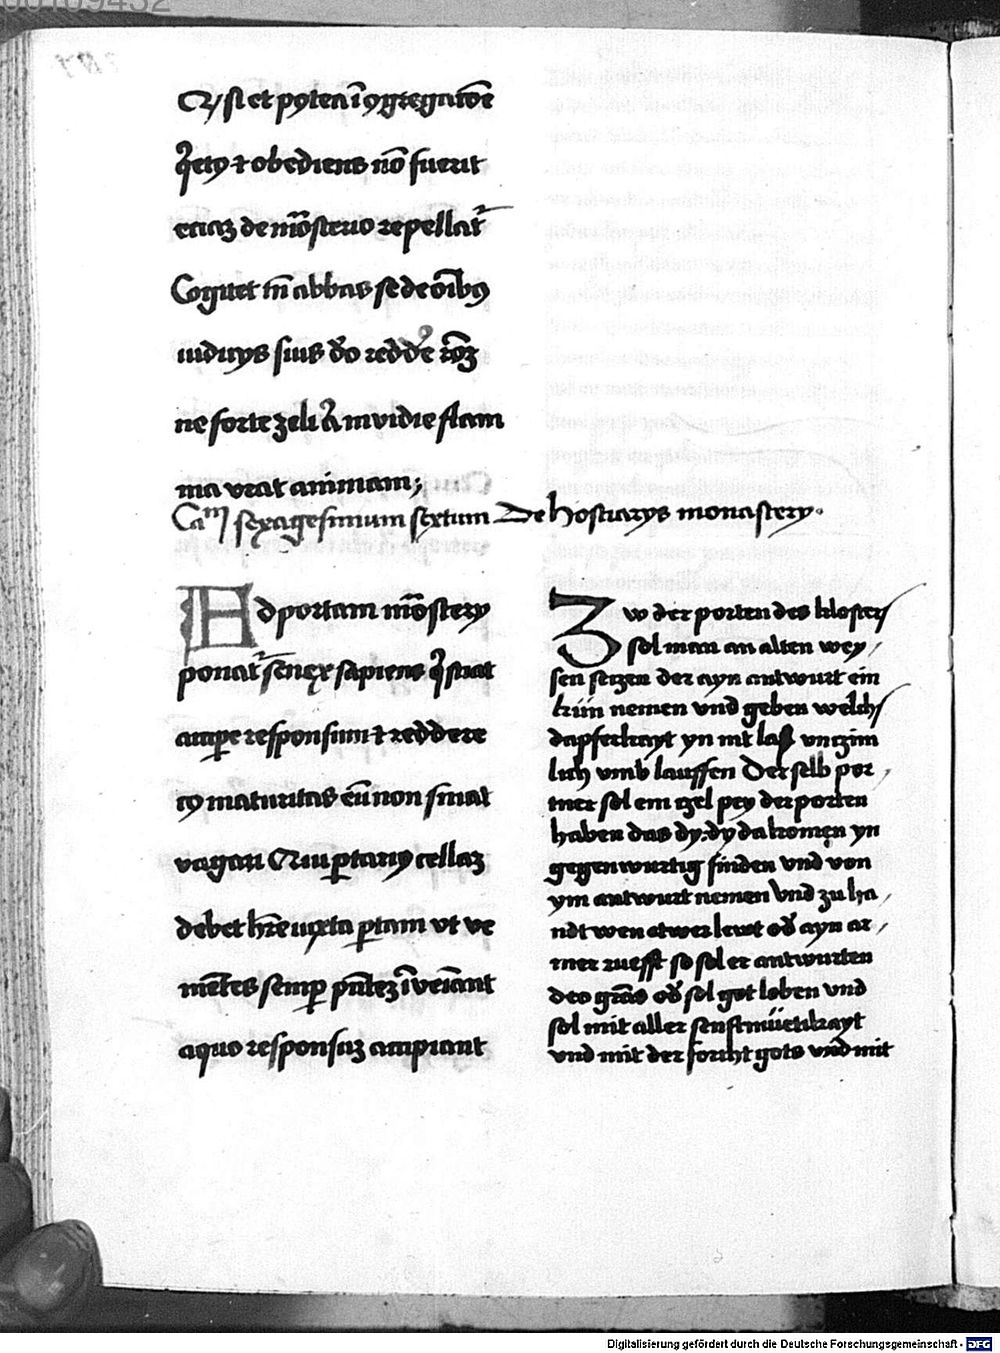 Q si et postea i ɔgregatōe
q̄etꝰ ⁊ obediens nō fuerit
eciaʒ de mōsterio repellat᷑
Cogitet tn̄ abbas se de oībꝰ
iudicijs suis deo reddere rōeʒ
ne forte zeli aut invidie flam
ma vrat animam;
Camͫ sexagesimum sextum De hostiarys monastery.
Ad portam mōstery
ponat᷑ senex sapiens q̄ sciat
accipe responsum ⁊ reddere
cꝰ maturitas eū non sinat
vagari Qui portariꝰ cellaʒ
debet hr̄e iuxta portam vt ve
nientes semp pn̄teʒ īveniant
a quo responsuʒ accipiant
Zw der porten des kloster
sol man an alten wey/
sen seczen der ayn antwurt ein
kün nemen vnd geben welchs
dapferkayt yn nit lass vnczim
lich vmb lauffen Der selb por/
tner sol ein czel pey der porten
haben das dy, dy da komen yn
gegenwurtig finden vnd von
ym antwurt nemen vnd zu ha/
ndt wen etwer lewt od ayn ar/
mer ruefft so sol er antwurten
deo grās od sol got loben vnd
sol mit aller senftmüetikayt
vnd mit der forcht gots vnd mit
Digitalisierung gefördert durch die Deutsche Forschungsgemeinschaft - DFG